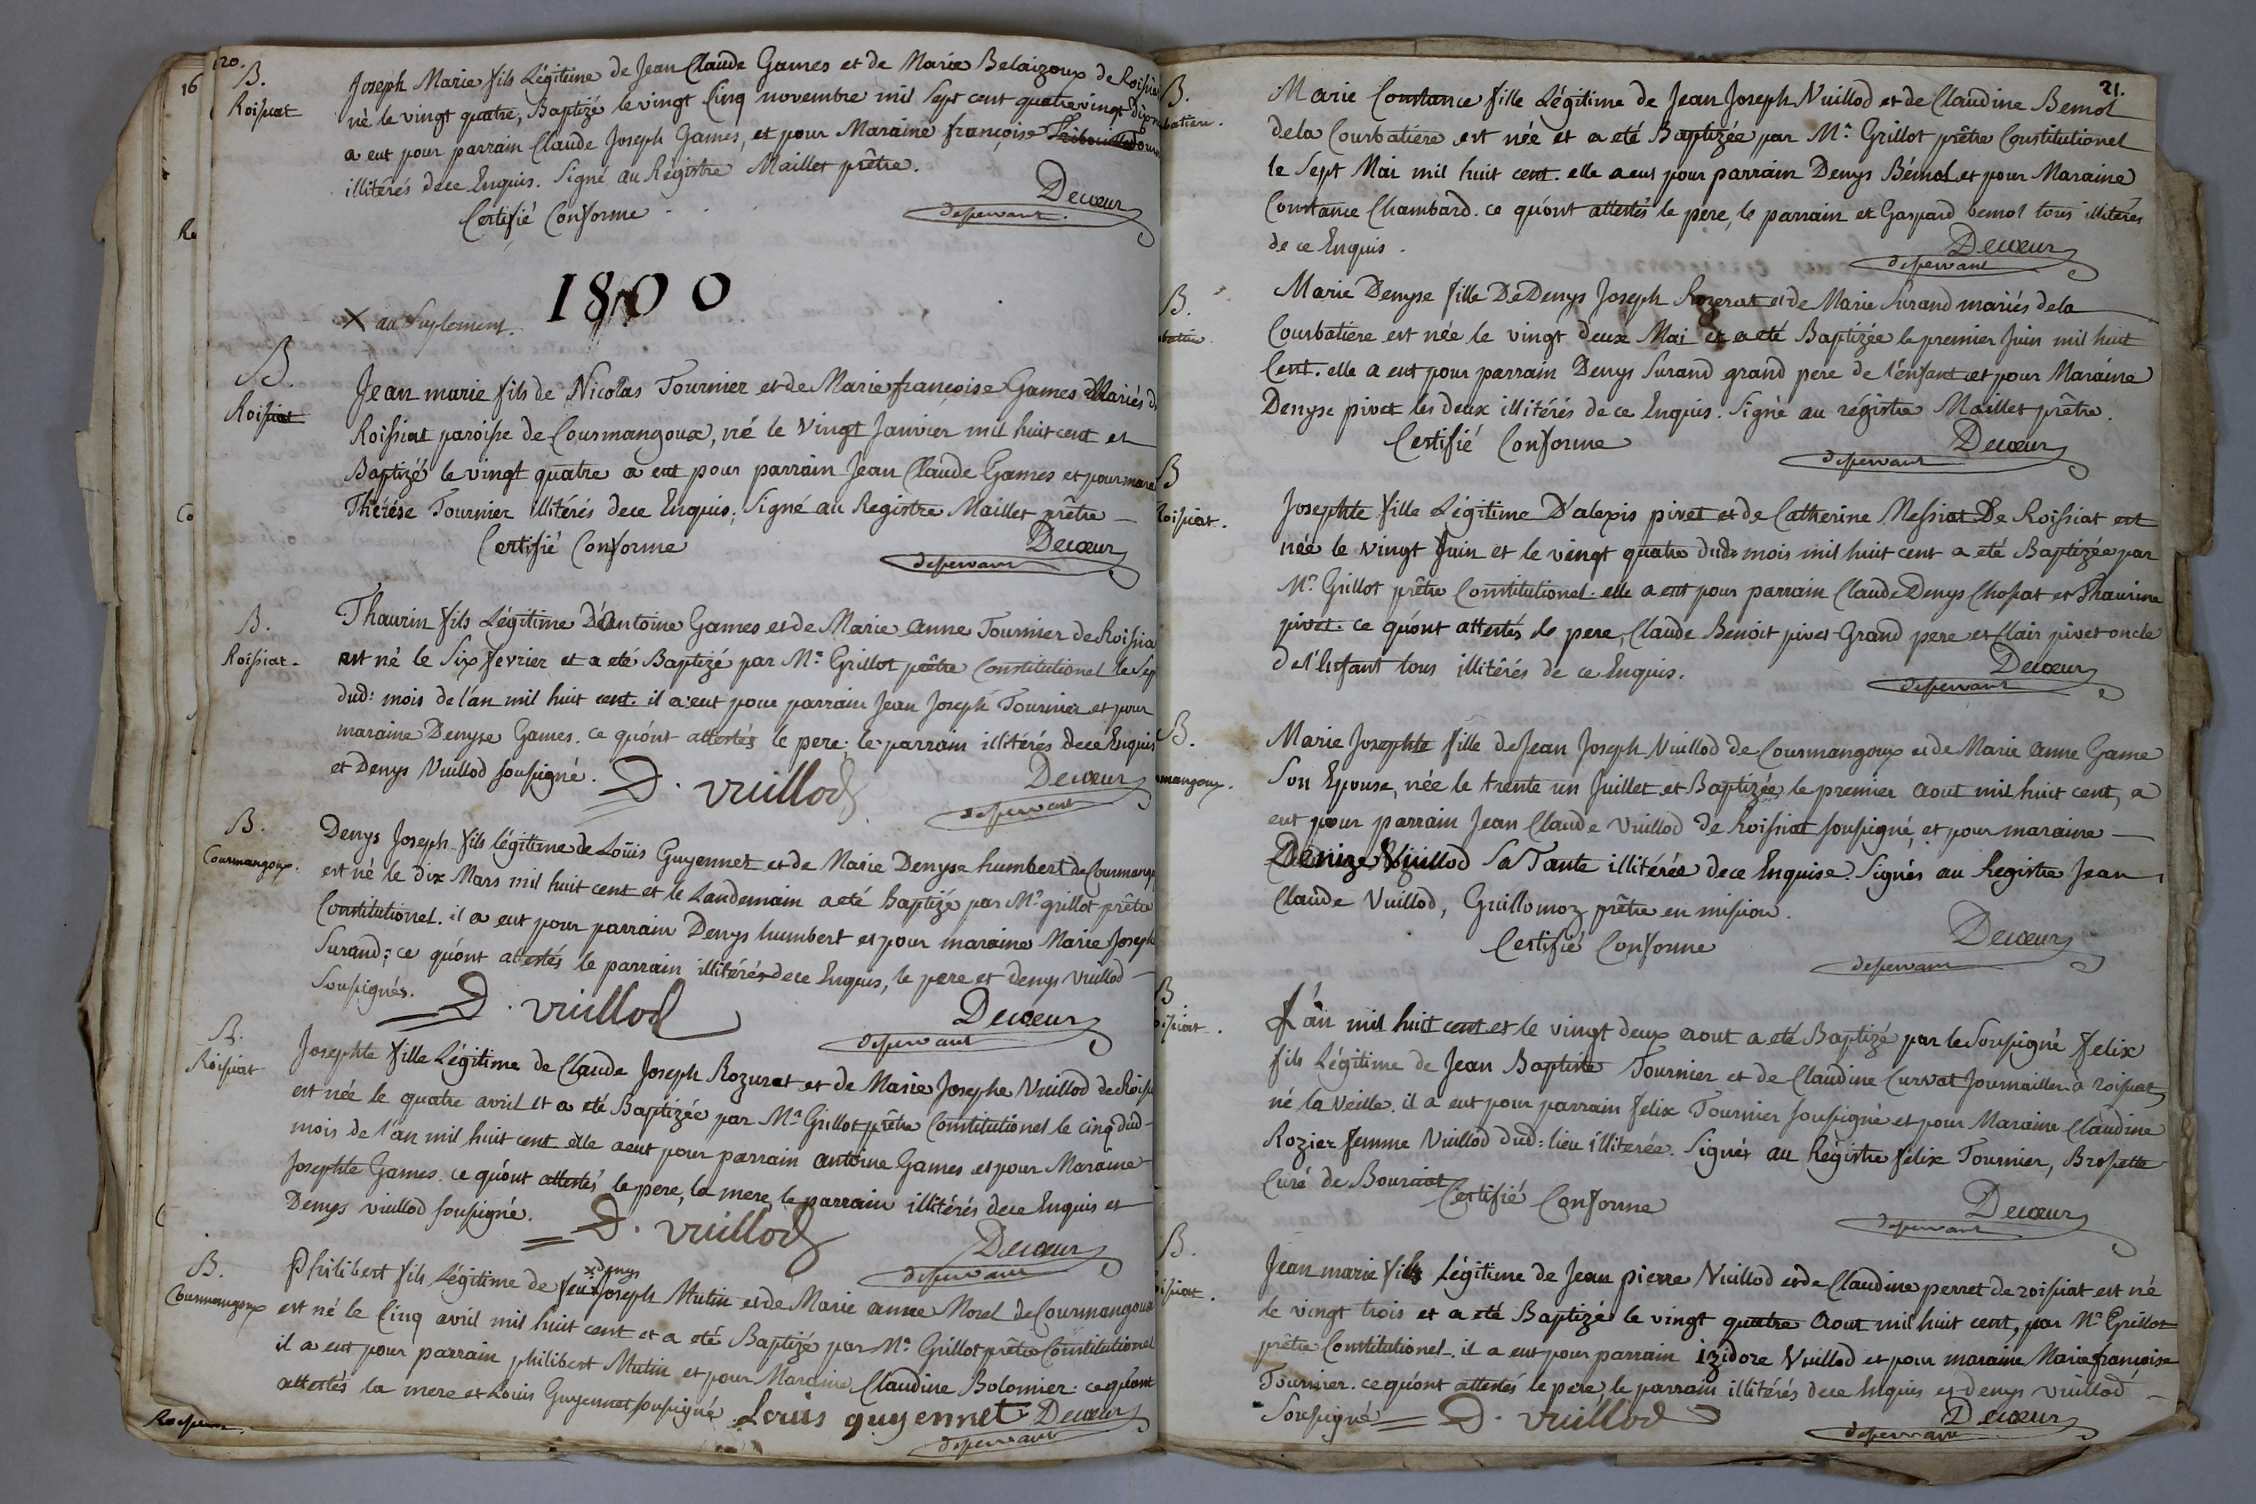 120.
B.
Roissiat
Joseph Marie fils Légitime de Jean Claude Games et de Marie Belaizoux de Roissia
né le vingt quatre, Baptizé le vingt Cinq novembre mil Sept cent quatrevingt
a eut pour parrain Claude Joseph Games, et pour Maraine françoise
illitérés de ce Enquis. Signé au Registre Maillet prêtre.
Certifié Conforme
Decœur
desservant.
1800
X au Suplement.
B.
Roissiat
Jean marie fils de Nicolas Tournier et de Marie françoise Games Mariés de
Roissiat paroisse de Courmangoux, né le Vingt Janvier mil huit cent et
Baptizé le vingt quatre a eut pour parrain Jean Claude Games et pour mara
Thérése Tournier illitérés de ce Enquis; Signé au Registre Maillet prêtre
Certifié Conforme
Decœur
desservant
B.
Roissiat
Thaurin fils Légitime D'Antoine Games et de Marie Anne Tournier de Roissia
est né le Six fevrier et a eté Baptizé par Mr. Grillot prêtre Constitutionel le Sep
dud: mois de l'an mil huit cent. il a eut pour parrain Jean Joseph Tournier et pour
maraine Denyse Games. ce qu'ont attestés le pere, le parrain illitérés de ce Enquis
et Denys Vuillod soussigné.
D. vuillod
Decœur
desservant
B.
Courmangoux.
Denys Joseph fils légitime de Loüis Guyennet et de Marie Denyse humbert de Courmango
est né le dix Mars mil huit cent et le Landemain a eté Baptizé par Mr. grillot prêtre
Constitutionel. il a eut pour parrain Denys humbert et pour maraine Marie Joseph
Surand; ce qu'ont attestés le parrain illitérés de ce Enquis, le pere et denys Vuillod
Soussignés.
D. vuillod
Decœur
desservant
B.
Roissiat
Josephte fille Légitime de Claude Joseph Rozurat et de Marie Josephe Vuillod de Roissi
est née le quatre avril et a eté Baptizée par Mr. Grillot prêtre Constitutionel le cinq dud
mois de l'an mil huit cent elle a eut pour parrain antoine Games et pour Maraine
Josephte Games. ce qu'ont attestés le pere, la mere, le parrain illitérés de ce Enquis et
Denys vuillod soussigné.
D. vuillod
Decœur
desservant
B.
Courmangoux
x denys
Philibert fils Légitime de feu x Joseph Mutin et de Marie anne Morel de Courmangoux
est né le Cinq avril mil huit cent et a eté Baptizé par Mr. Grillot prêtre Constitutionel
il a eut pour parrain philibert Mutin et pour Maraine Claudine Bolomier: ce qu'ont
attestés la mere et Loüis Guyennet soussigné
Loüis guyennet
Decœur
desservant
21.
B.
batiere.
Marie Constance fille Légitime de Jean Joseph Vuillod et de Claudine Bemol
de la Courbatiere est née et a eté Baptizée par Mr. Grillot prêtre Constitutionel
le Sept Mai mil huit cent. elle a eut pour parrain Denys Bémol et pour Maraine
Constance Chambard. ce qu'ont attestés le pere, le parrain et Gaspard bemol tous illitérés
de ce Enquis.
Decœur
desservant
B.
batiere
Marie Denyse fille De Denys Joseph Rozerat et de Marie Surand mariés de la
Courbatiere est née le vingt deux Mai et a eté Baptizée le premier Juin mil huit
Cent. elle a eut pour parrain Denys Surand grand pere de l'enfant et pour Maraine
Denyse pivet les deux illitérés de ce Enquis. Signé au régistre Maillet prêtre.
Certifié Conforme
Decœur
desservant
B
Roissiat.
Josephte fille Légitime D'alexis pivet et de Catherine Messiat De Roissiat est
née le vingt Juin et le vingt quatre dud: mois mil huit cent a eté Baptizée par
Mr. Grillot prêtre Constitutionel. elle a eut pour parrain Claude Denys Chossat et Thaurine
pivet. ce qu'ont attestés le pere, Claude Benoit pivet Grand pere et Clair pivet oncle
de l'Enfant tous illitérés de ce Enquis.
Decœur
desservant
B.
mangoux.
Marie Josephte fille de Jean Joseph Vuillod de Courmangoux et de Marie Anne Game
Son Epouse, née le trente un Juillet et Baptizée le premier Aout mil huit cent, a
eut pour parrain Jean Claude Vuillod de Roissiat soussigné, et pour maraine
Denize Vuillod Sa Tante illitérée de ce Enquise. Signés au Registre Jean
Claude Vuillod, Guillomoz prêtre en mission.
Certifié Conforme
Decœur
desservant
B
oissiat.
L'an mil huit cent et le vingt deux aout a eté Baptizé par le Soussigné felix
fils Légitime de Jean Baptiste Tournier et de Claudine Curvat Journailler à roissiat
né la Veille. il a eut pour parrain felix Tournier soussigné et pour Maraine Claudine
Rozier femme Vuillod dud: lieu illiterée. Signés au Régistre félix Tournier, Brossette
Curé de Bourcia
Certifié Conforme
Decœur
desservant
B.
issiat.
Jean marie fils Légitime de Jean pierre Vuillod et de Claudine perret de roissiat est né
le vingt trois et a eté Baptizé le vingt quatre Aout mil huit cent, par Mr. Grillot
prêtre Constitutionel. il a eut pour parrain izidore Vuillod et pour maraine Marie françoise
Tournier. ce qu'ont attestés le pere, le parrain illitérés de ce Enquis et denys vuillod
Soussigné
D. vuillod
Decœur
desservant